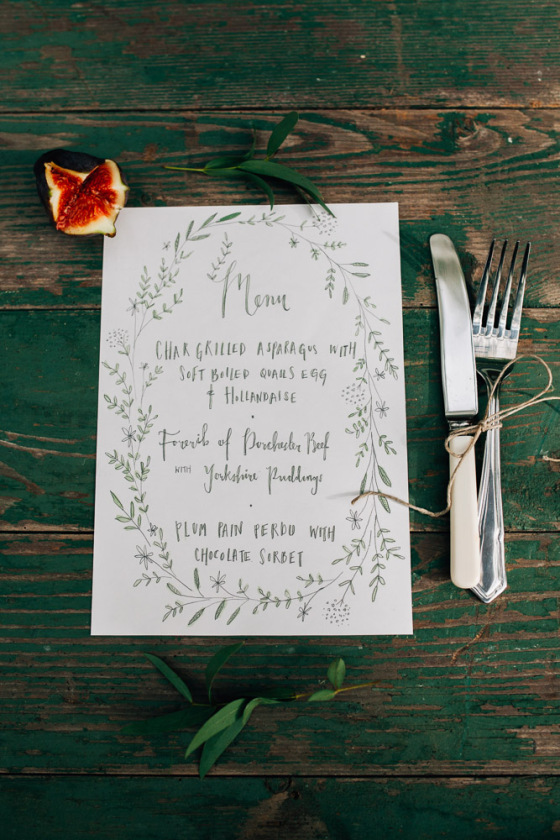 Menu
CHAR GRILLED ASPARAGUS WITH
SOFT BOILED QUAILS EGG
& HOLLANDAISE
Forerib of Dorchester Beef
WITH Yorkshire Puddings
PLUM PAIN PERDU WITH
CHOCOLATE SORBET